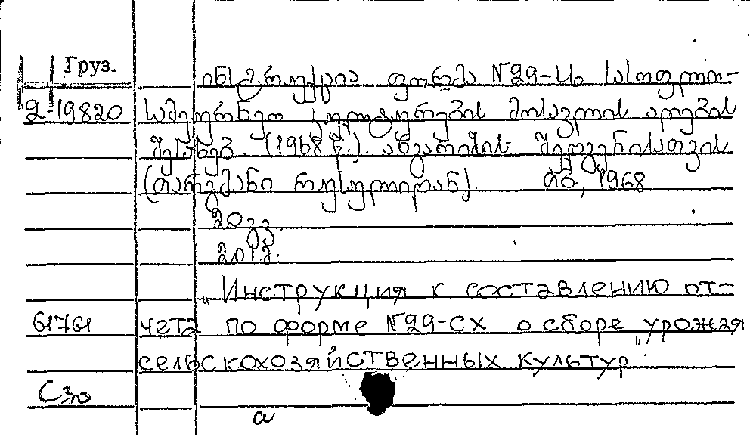 Груз.
ინსტრუქცია ფორმა №29-ს სასოფლო-
2-19820 სამეურნეო კულტურების მოსავლის აღების
შესახებ. (1968 წ.) ანგარიშის შედგენისათვის
(თარგმანი რუსულიდან) თბ., 1968
20 გვ.
„Инструкция к составлению от-
61761 чета по форме №29-СХ о сборе урожая
сельскохозяйственных культур"
Сзо
а